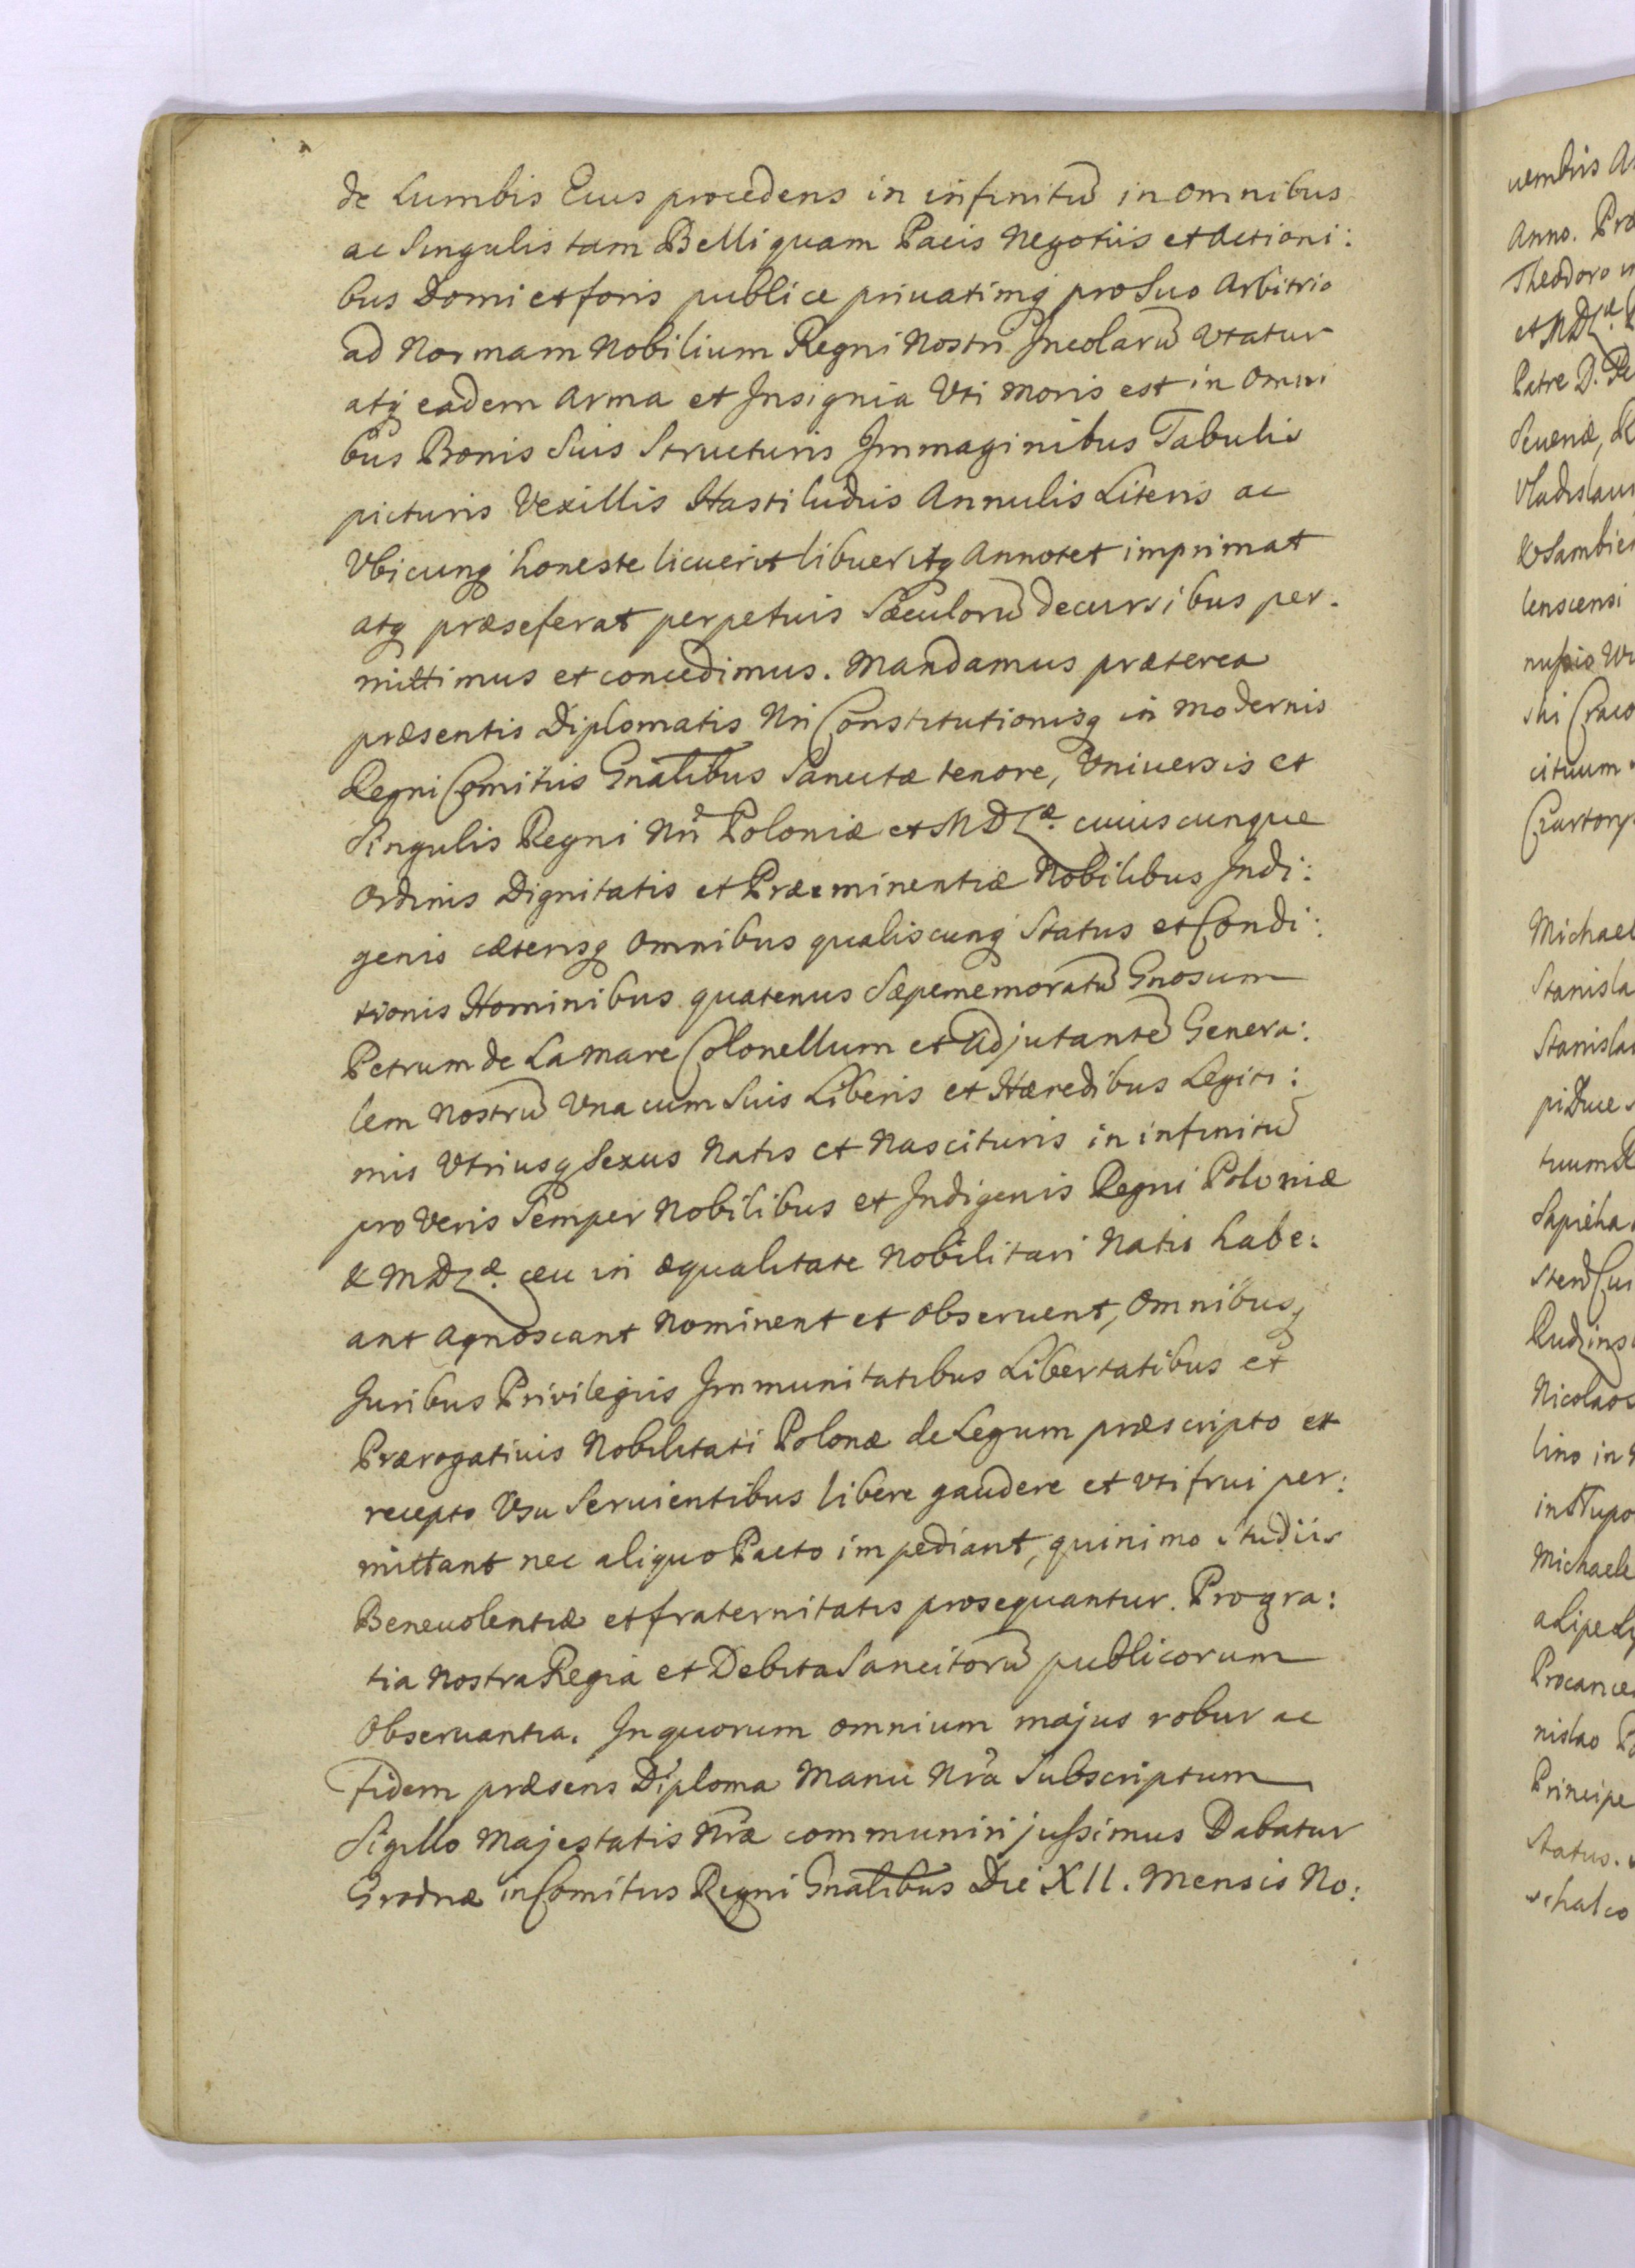 de Lumbis Eius procedens in infinitũ in omnibus
ac Singulis tam Belli quam Pacis Negotiis et Actioni:
bus Domi et foris publice priuatimq; pro Suo Arbitrio
ad Normam Nobilium Regni Nostri Incolarũ Vtatur
atq; eadem Arma et Insignia Vti moris est in Omni
bus Bonis Suis Structuris Immaginibus Tabulis
picturis Vexillis Hastiludiis Annulis Literis ac
Vbicunq; honeste licuerit libueritq; Annotet imprimat
atq; præseferat perpetuis Sæculorũ decursibus per.
mittimus et concedimus. Mandamus præterea
præsentis Diplomatis Nri Constitutionisq; in modernis
Regni Comitiis Gnalibus Sancitæ tenore, Vniuersis et
Singulis Regni Nri Poloniæ et M D L æ. cuiuscunque
Ordinis Dignitatis et Præeminentiæ Nobilibus Indi:
genis cæterisq; Omnibus qualiscunq; Status et Condi:
tionis Hominibus quatenus Sæpememoratũ Gnosum
Petrum de La Mare Colonellum et Adjutantẽ Genera:
lem Nostrũ Vna cum Suis Liberis et Hæredibus Legiti:
mis Vtriusq; Sexus Natis et Nascituris in infinitũ
pro Veris Semper Nobilibus et Indigenis Regni Poloniæ
& M D L æ. ceu in æqualitate Nobilitari Natis habe:
ant Agnoscant Nominent et Obseruent, Omnibusq;
Juribus Privilegiis Immunitatibus Libertatibus et
Prærogatiuis Nobilitati Polonæ de Legum præscripto et
recepto Vsu Seruientibus libere gaudere et vti frui per:
mittant nec aliquo Pacto impediant, quinimo Studiis
Beneuolentiæ et fraternitatis prosequantur. Pro gra:
tia Nostra Regia et Debita Sancitorũ publicorum
Obseruantia. In quorum omnium majus robur ac
Fidem præsens Diploma Manu Nra Subscriptum
Sigillo Majestatis Nræ communiri jussimus Dabatur
Grodnæ in Comitiis Regni Gnalibus Die XII. Mensis No:
uembris
Anno.
Theodoro
et M D L æ.
Patre D.
Vladislaus
Michael
Stanisla
Stanisla
Sapieha
Nicolaos
lino in
Michaele
nislao
Principe
Status.